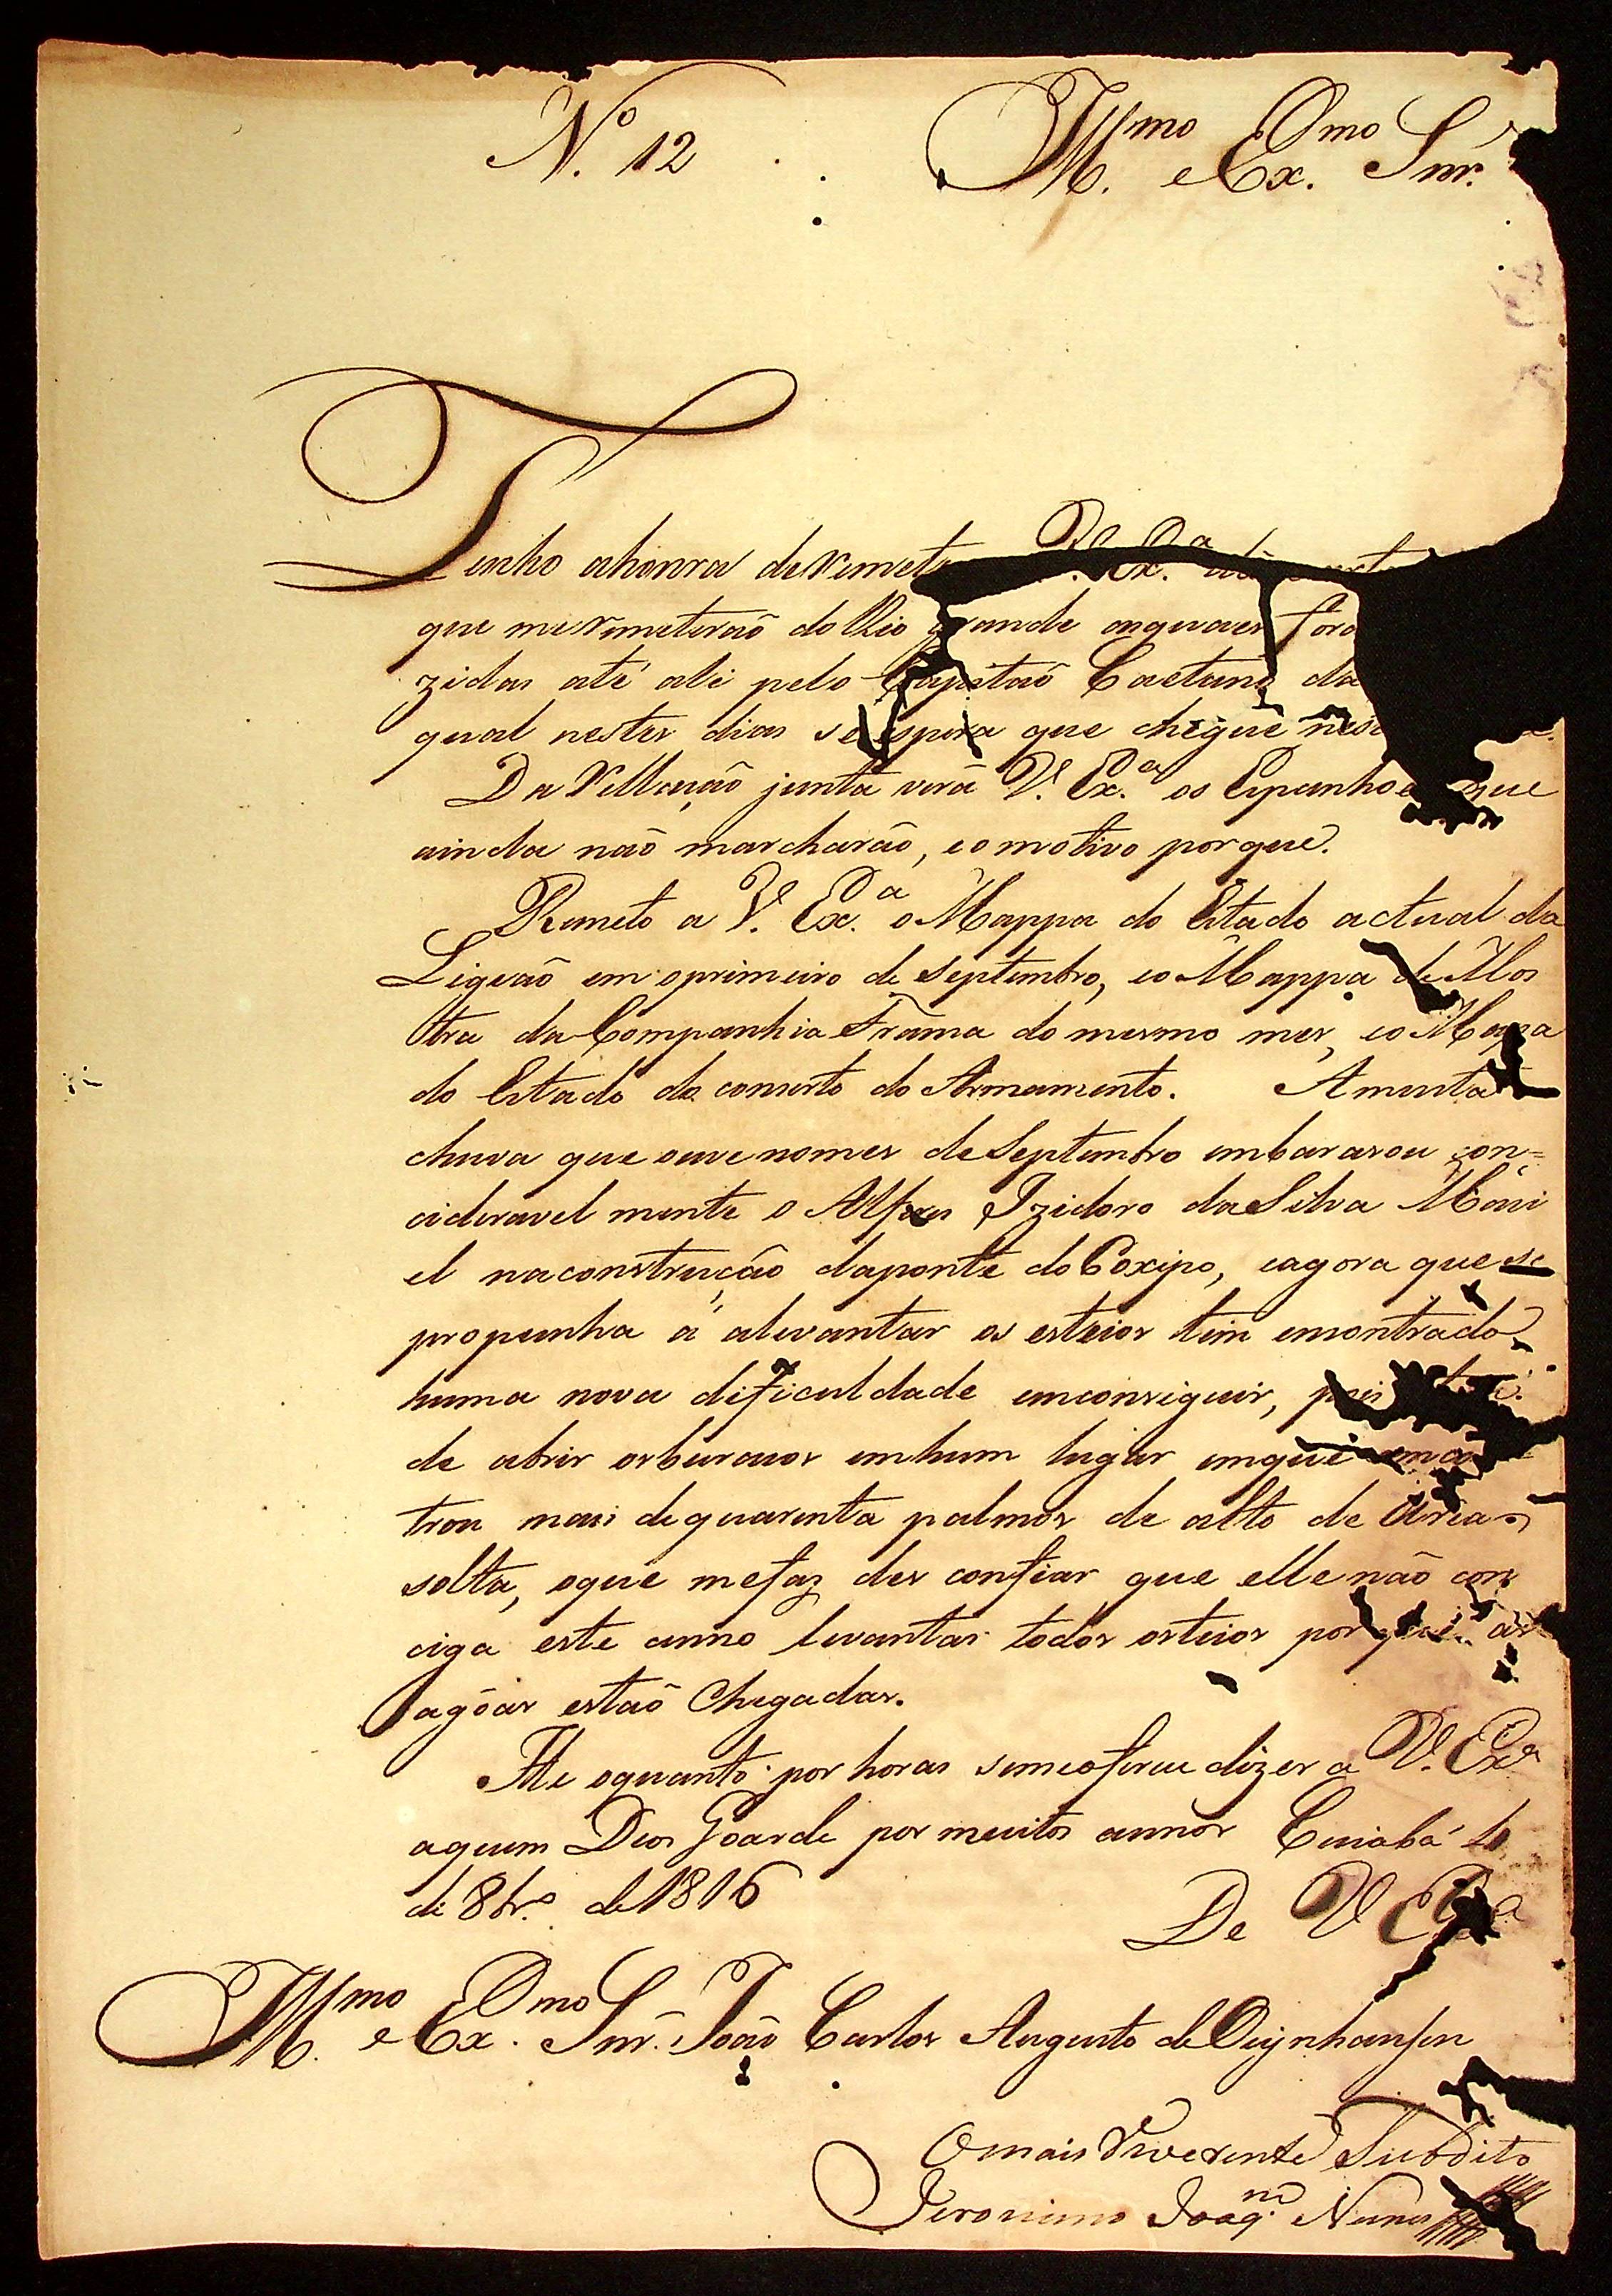 N.º 12
Ill.mo e Ex.mo Snr.
Tenho ahonra deremete V. Ex.ª
que meremeterão do Rio grande asquaes fora
zidas até ali pelo Capitão Caetano da
qual nestes dias se espera que chegue nes
Da Rellação junta verá V. Ex.ª os Espanhoes que
ainda não marcharão, eomotivo porque.
Remeto a V. Ex.ª oMappa do Estado actual da
Ligeão em oprimeiro de Septembro, eo Mappa de Mos
tra da Companhia Franca do mesmo mes, eo Mapa
do Estado do conserto do Armamento. Amuita
chuva que ouve nomes deSeptembro embarasou con=
cideravel mente o Alferes Izidoro daSilva
el naconstrucção daponte do Coxipo, eagora que se
propunha á alevantar os esteios tem encontrado
huma nova dificuldade emconseguir, pois
de abrir osburacos emhum lugar emque encon
trou mais dequarenta palmos de alto de Area
solta, oque mefaz des confiar que elle não con
ciga este anno levantar todos osteios por que as
agôas estão Chegadas.
He oquanto por horas semeoferece dizer a V. Exª
aquem Deos Goarde por muitos annos Cuiabá
de 8br.º de1816
De V Exª
Ill.mo e Ex.mo Snr. João Carlos Augusto deOeynhausen
Omais Reverente Subdito
Jeronimo Joaq.m Nunes